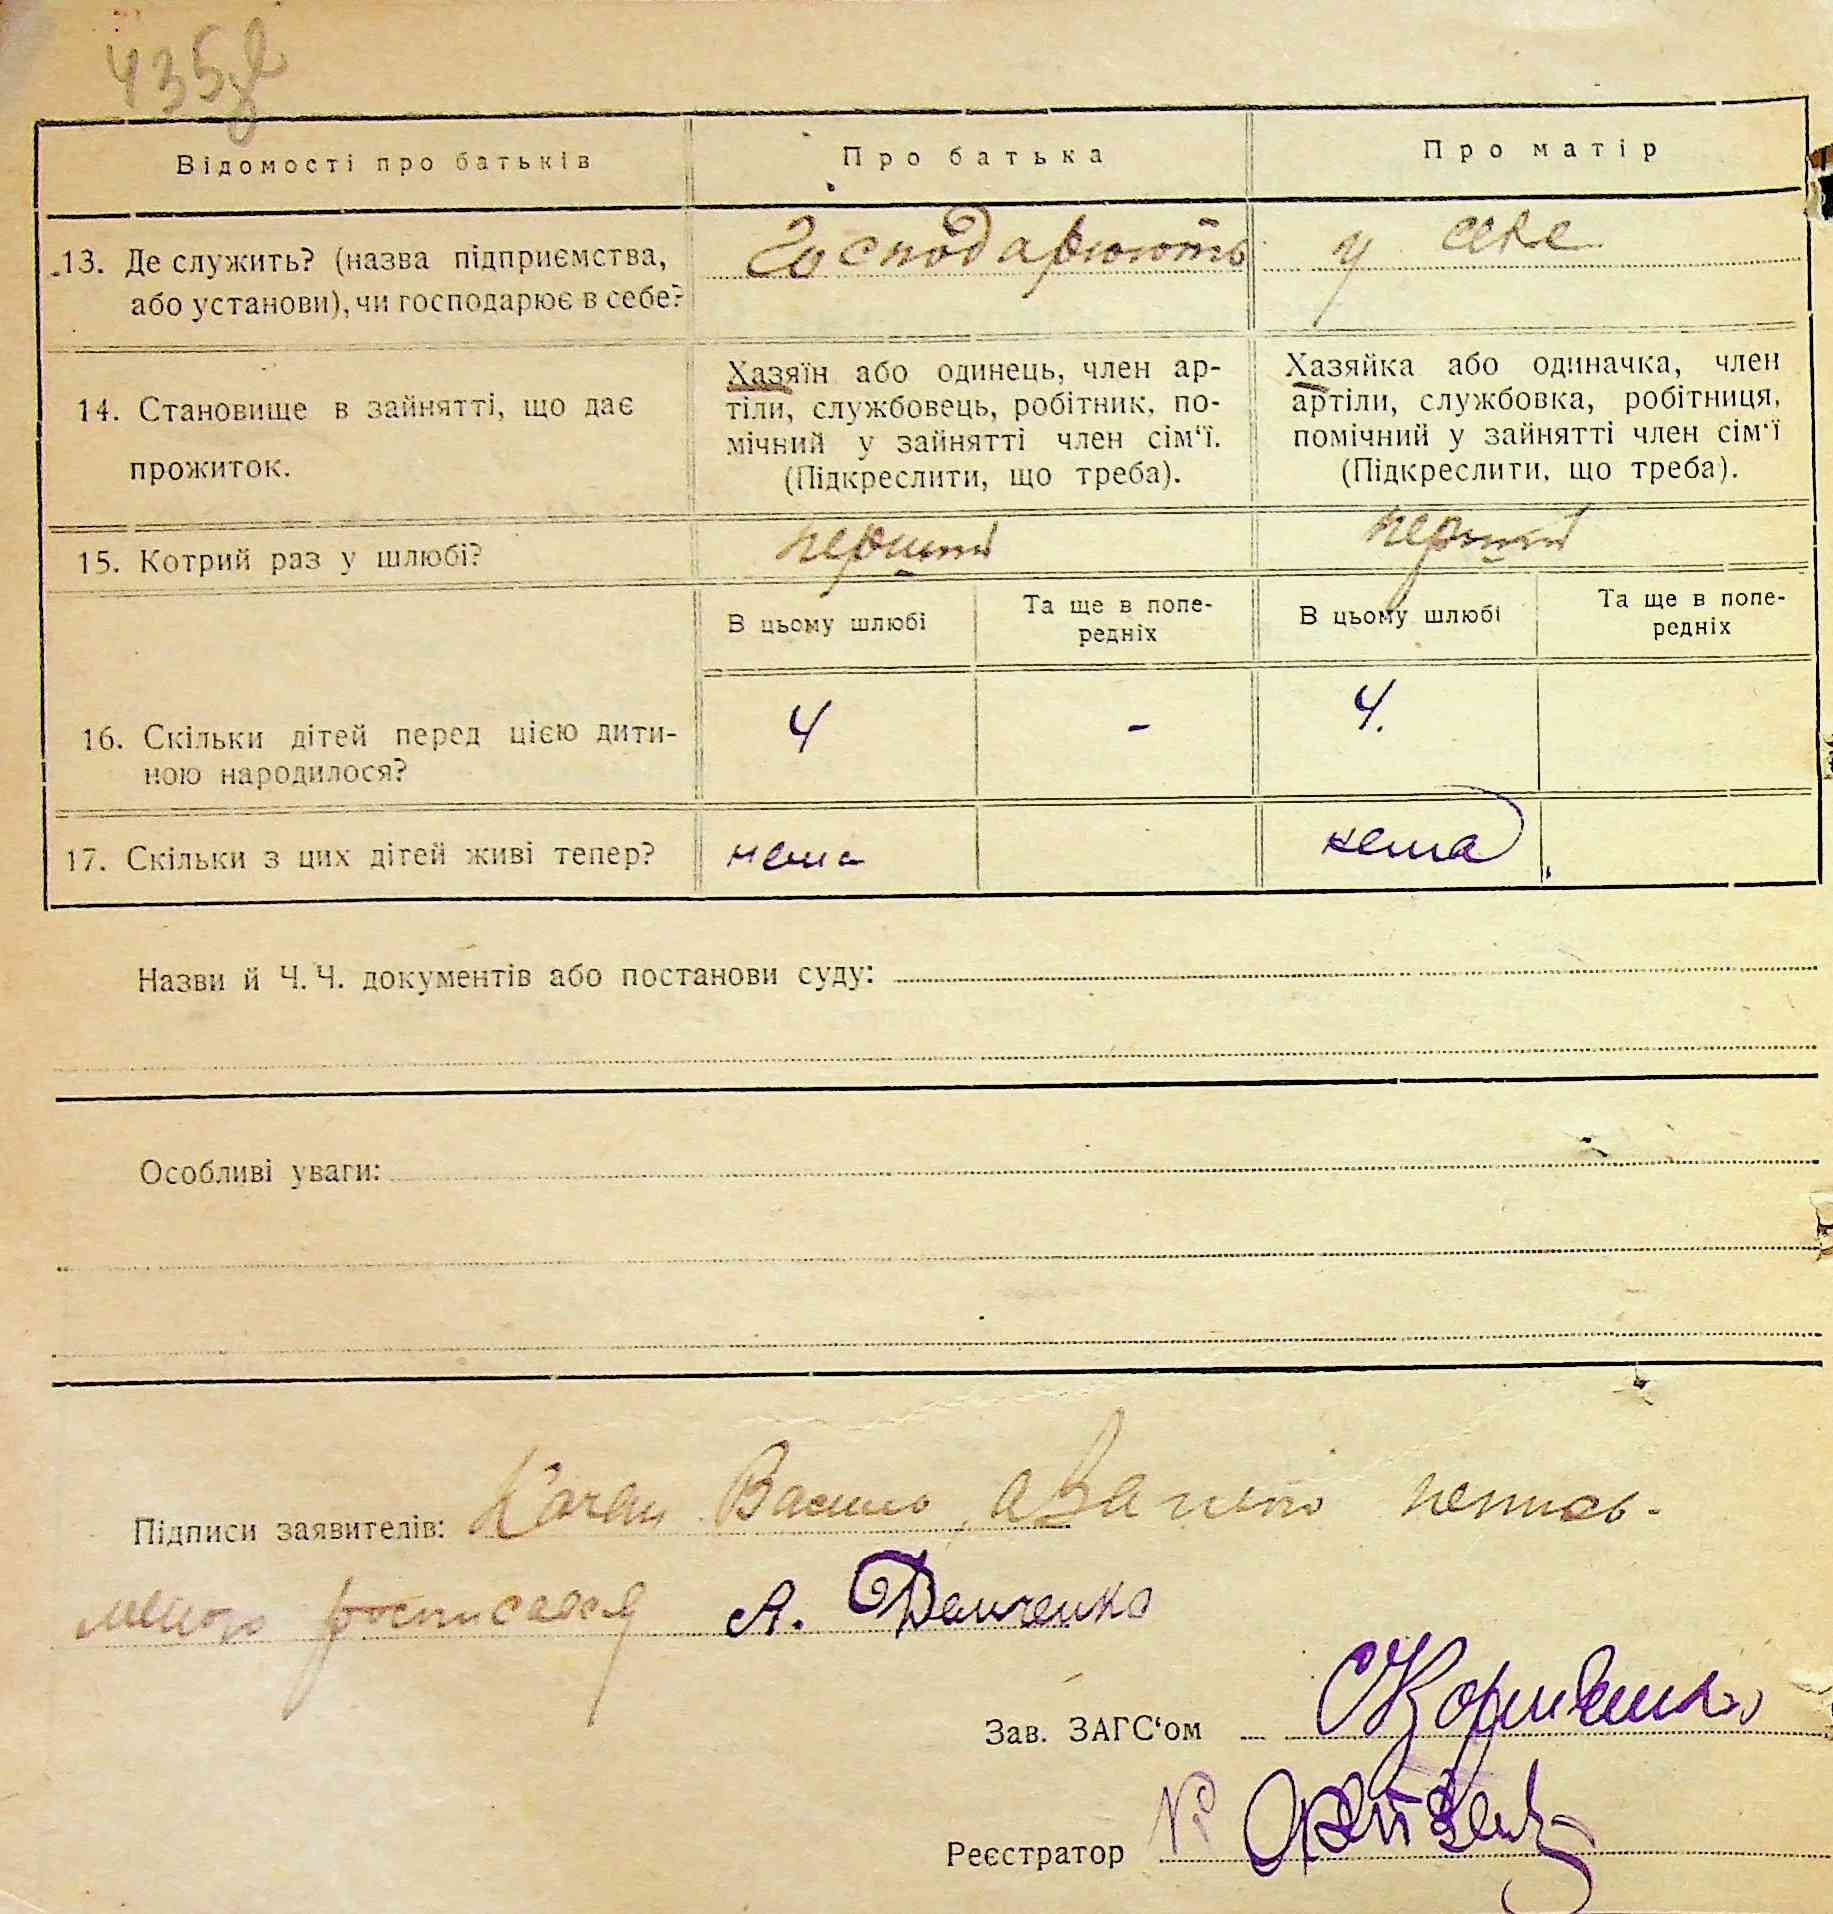 435
Відомості про батьків
Про батька
Про матір
13. Де служить? (назва підприємства,
або установи), чи господарює в себе?
Господарюють у себе
14. Становище в зайнятті, що дає
прожиток.
Хазяїн або одинець, член ар-
тіли, службовець, робітник, по-
мічний у зайнятті член сім‘ї.
(Підкреслити, що треба).
Хазяйка або одиначка, член
артіли, службовка, робітниця,
помічний у зайнятті член сім‘ї
(Підкреслити, що треба).
15. Котрий раз у шлюбі?
перший
перший
В цьому шлюбі
Та ще в попе-
редніх
В цьому шлюбі
Та ще в попе-
редніх
16. Скільки дітей перед цією дити-
ною народилося?
4
-
4.
17. Скільки з цих дітей живі тепер?
нема
нема
Назви й Ч. Ч. документів або постанови суду:
Особливі уваги:
Підписи заявителів: Качан Василь, а за него непись-
меного росписався А. Демченко
Зав. ЗАГС‘ом
Реєстратор